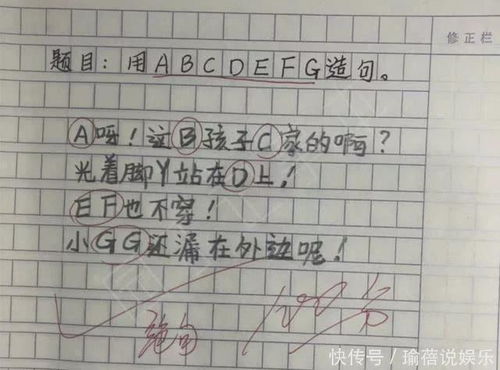 修正栏
题目：用ABCDEFG造句。
A呀！这B孩子C家的啊？
光着脚丫站在D上！
EF也不穿！
小GG还漏在外边呢！
绝句 100分
快传号／瑜蓓说娱乐